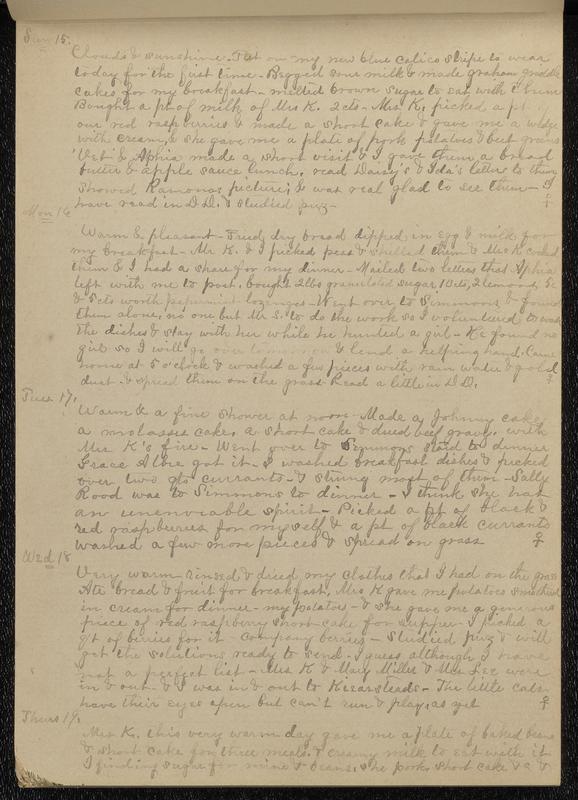 Sun 15.
Clouds & sunshine. Put on my new blue calico stripe to wear
today for the first time - Begged sour milk & made graham griddle
cakes for my breakfast - melted brown sugar to eat with them
Bought a pt of milk of Mrs K. 2cts - Mrs K. picked a pt
our red raspberries & made a short cake & gave me a wedge
with cream, & she gave me a plate of pork potatoes & beet greens
Vet & Aphia made a short visit & I gave them a bread
butter & apple sauce lunch. read Daisy's & Ida's letter to them
showed Ramonas picture; & was real glad to see them -
have read in D.D. & studied puz -
Mon 16
Warm & pleasant - Fried dry bread dipped in egg & milk for
my breakfast - Mr K. & I picked peas & shelled them & Mrs K cooked
them & I had a share for my dinner - Mailed two letters that Aphia
left with me to post. bought 2lbs granulated sugar 10cts, 2 lemons, 5c
& 5cts worth peppermint lozenges - Went over to Simmons & found
them alone, no one but Mr S. to do the work so I volunteered to wash
the dishes & stay with her while he hunted a girl - He found no
girl so I will go over tomorrow & lend a helping hand. Came
home at 5 o'clock & washed a few pieces with rain water & gold
dust & spread them on the grass Read a little in D.D. ♀
Tues 17.
Warm & a fine shower at noon - Made a Johnny cake
a molasses cake, a short cake & dried beef gravy. with
Mrs K's fire - Went over to Simmons staid to dinner
Grace Albee got it - I washed breakfast dishes & picked
over two qts currants - & strung most of them - Sally
Rood was to Simmons to dinner - I think she has
an unenviable spirit - Picked a pt of black &
red raspberries for myself & a pt of black currants
washed a few more pieces & spread on grass ♀
Wed 18
Very warm - rinsed & dried my clothes that I had on the grass
Ate bread & fruit for breakfast. Mrs K gave me potatoes smothered
in cream for dinner - my potatoes - & she gave me a generous
piece of red raspberry short cake for supper - I picked a
qt of berries for it - Company berries - Studied puz & will
get the solutions ready to send - I guess although I have
not a perfect list - Mrs K & Mary Miller & Mrs Lee were
in & out - & I was in & out to Kearsteads - The little cats
have their eyes open but can't run & play, as yet ♀
Thurs 19.
Mrs K. this very warm day gave me a plate of baked beans
& short cake for three meals. & creamy milk to eat with it
I finding sugar for mine & beans, she pork, short cake &c &